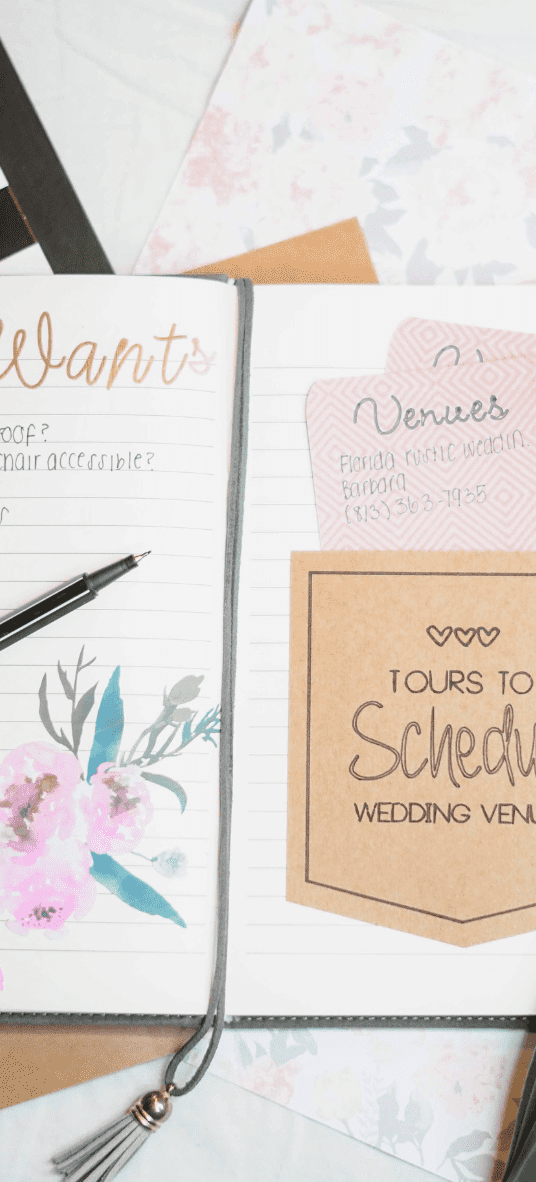 Wants
oof?
chair accessible?
s
Venues
Florida rustic weddin.
Barbara
(813) 363-7935
TOURS TO
Schedu
WEDDING VENU